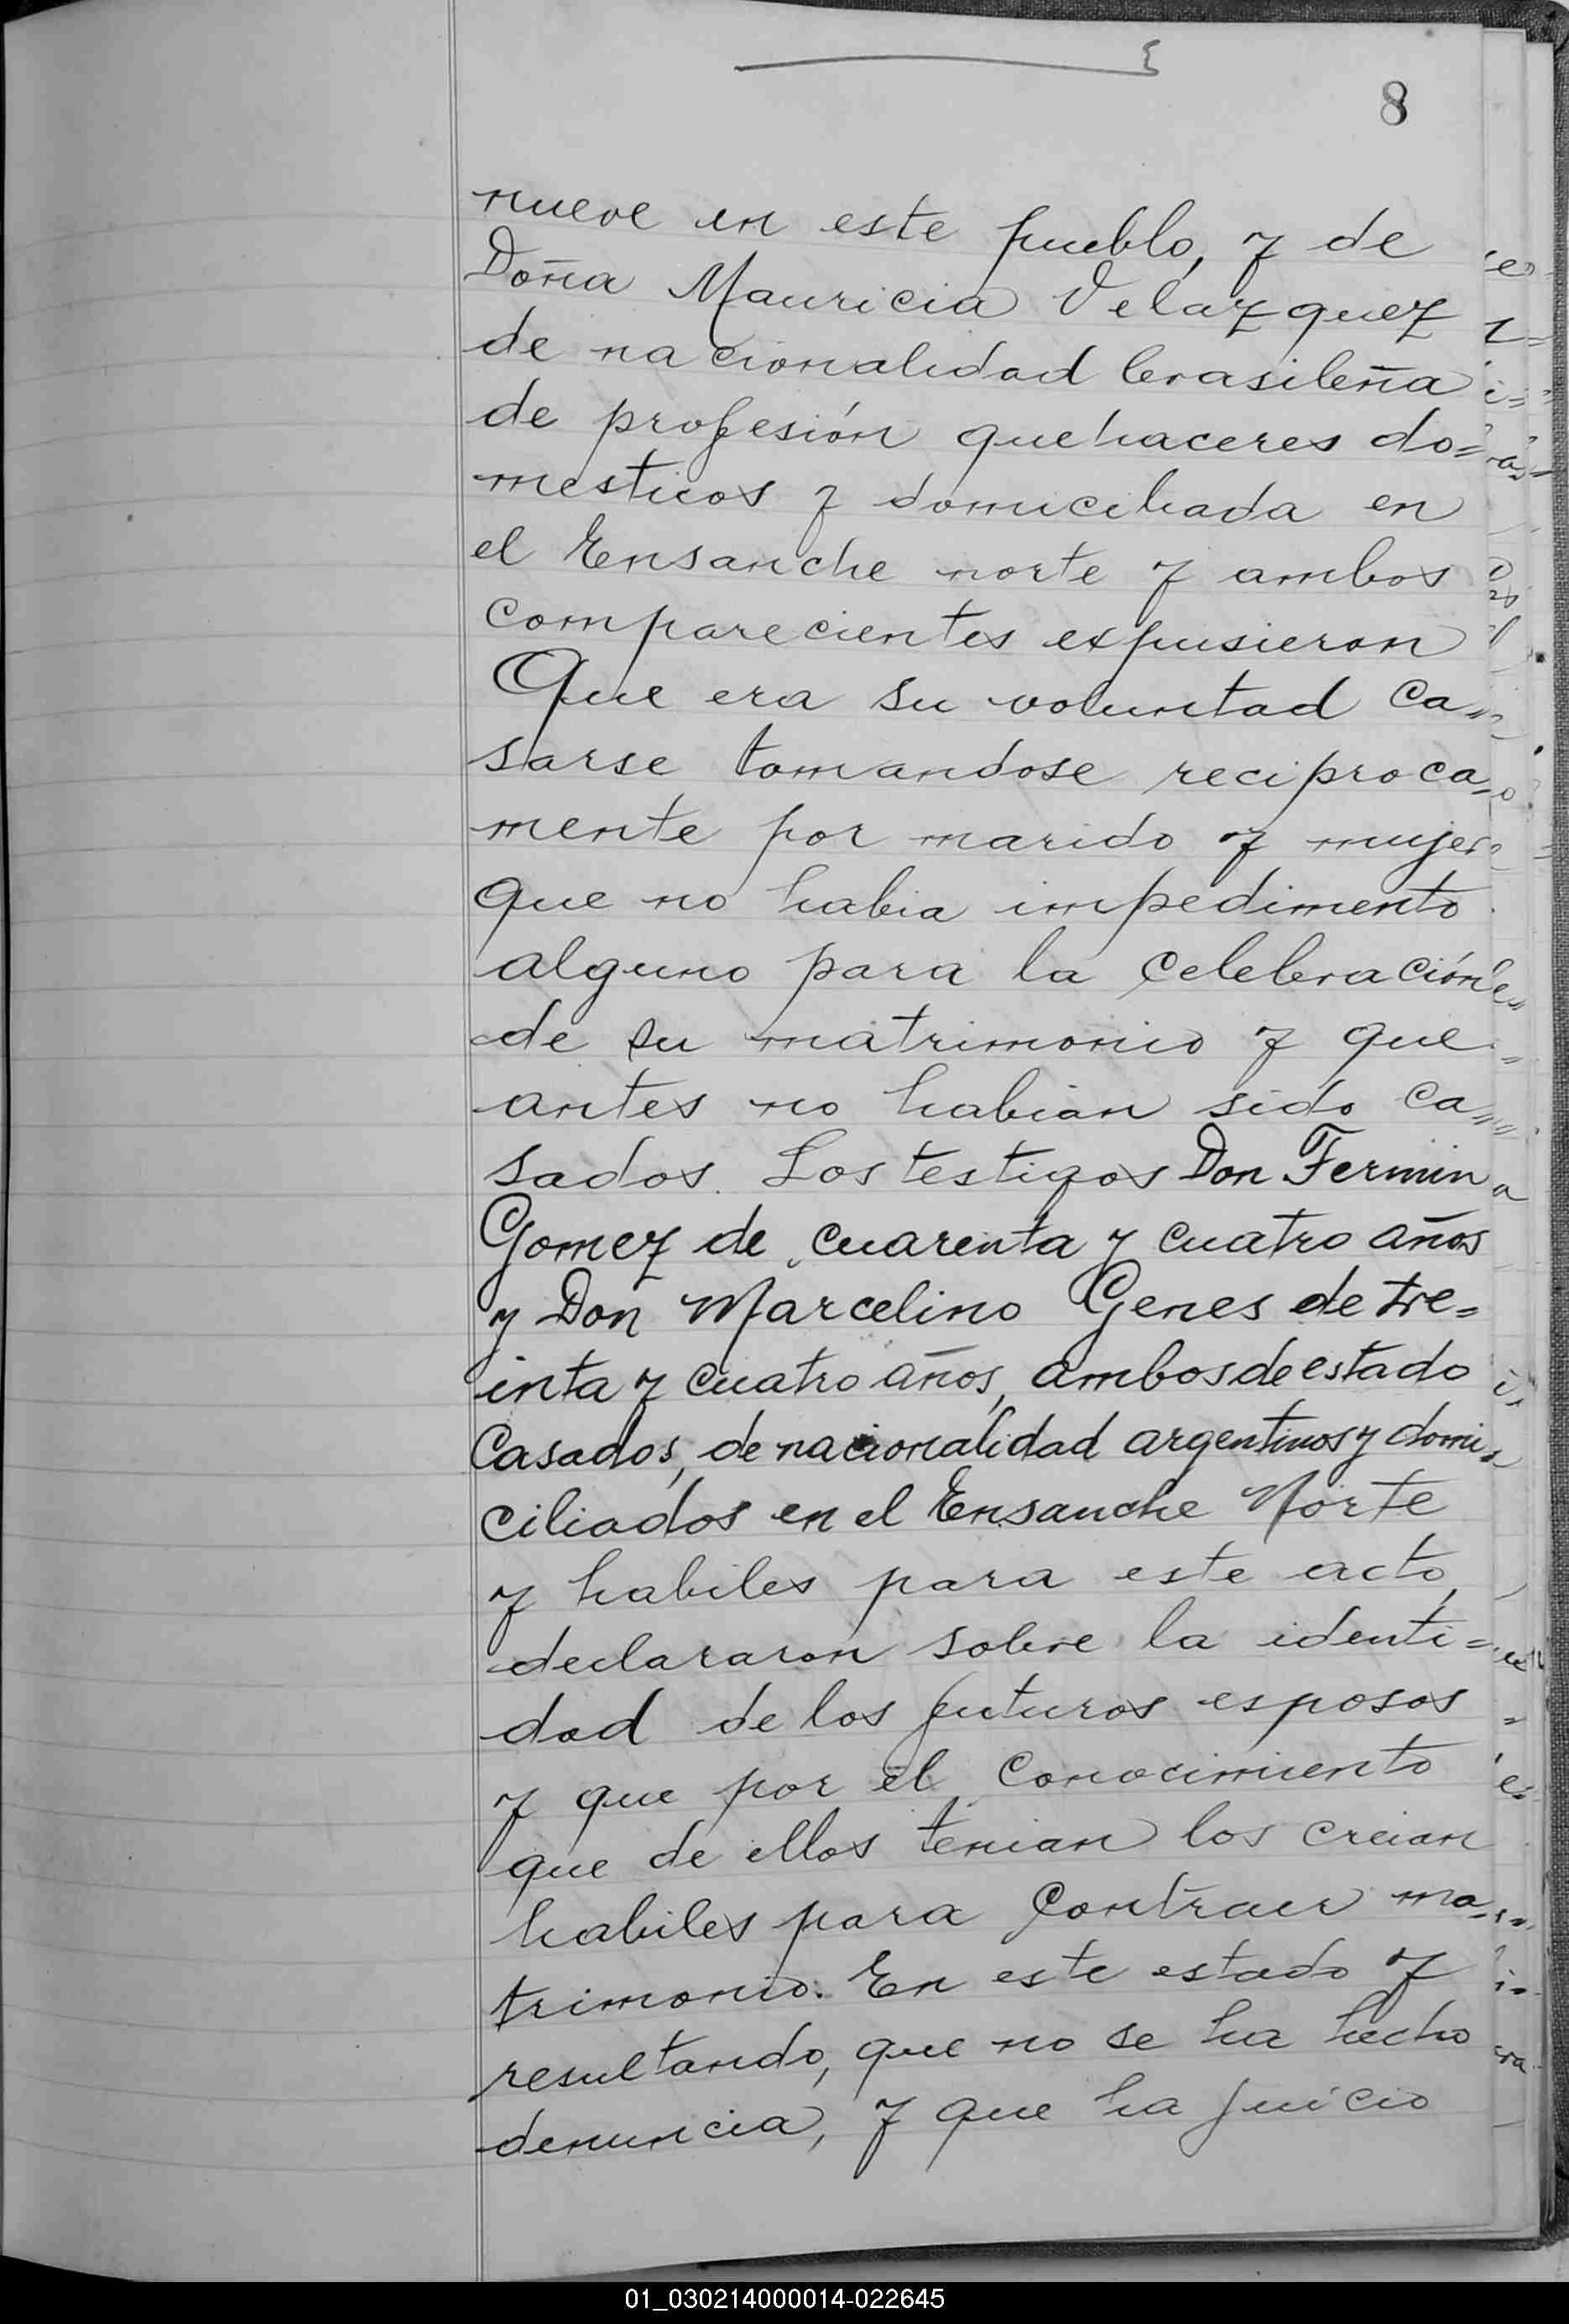 8
nueve en este pueblo, y de
Doña Mauricia Velazquez
de nacionalidad brasileña
de profesión quehaceres do=
mesticos y domiciliada en
el Ensanche norte y ambos
comparecientes expusieron
Que era su voluntad ca=
sarse tomandose reciproca=
mente por marido y mujer
que no habia impedimento
alguno para la celebración
de su matrimonio y que
antes no habian sido ca=
sados. Los testigos Don Fermin
Gomez de cuarenta y cuatro años
y Don Marcelino Genes de tre=
inta y cuatro años, ambos de estado
Casados, de nacionalidad argentinos y domi=
ciliados en el Ensanche Norte
y habiles para este acto,
declararon sobre la identi=
dad de los futuros esposos
y que por el conocimiento
que de ellos tenian los creian
habiles para contraer ma=
trimonio. En este estado y
resultando, que no se ha hecho
denuncia, y que ha juicio
01_030214000014-022645